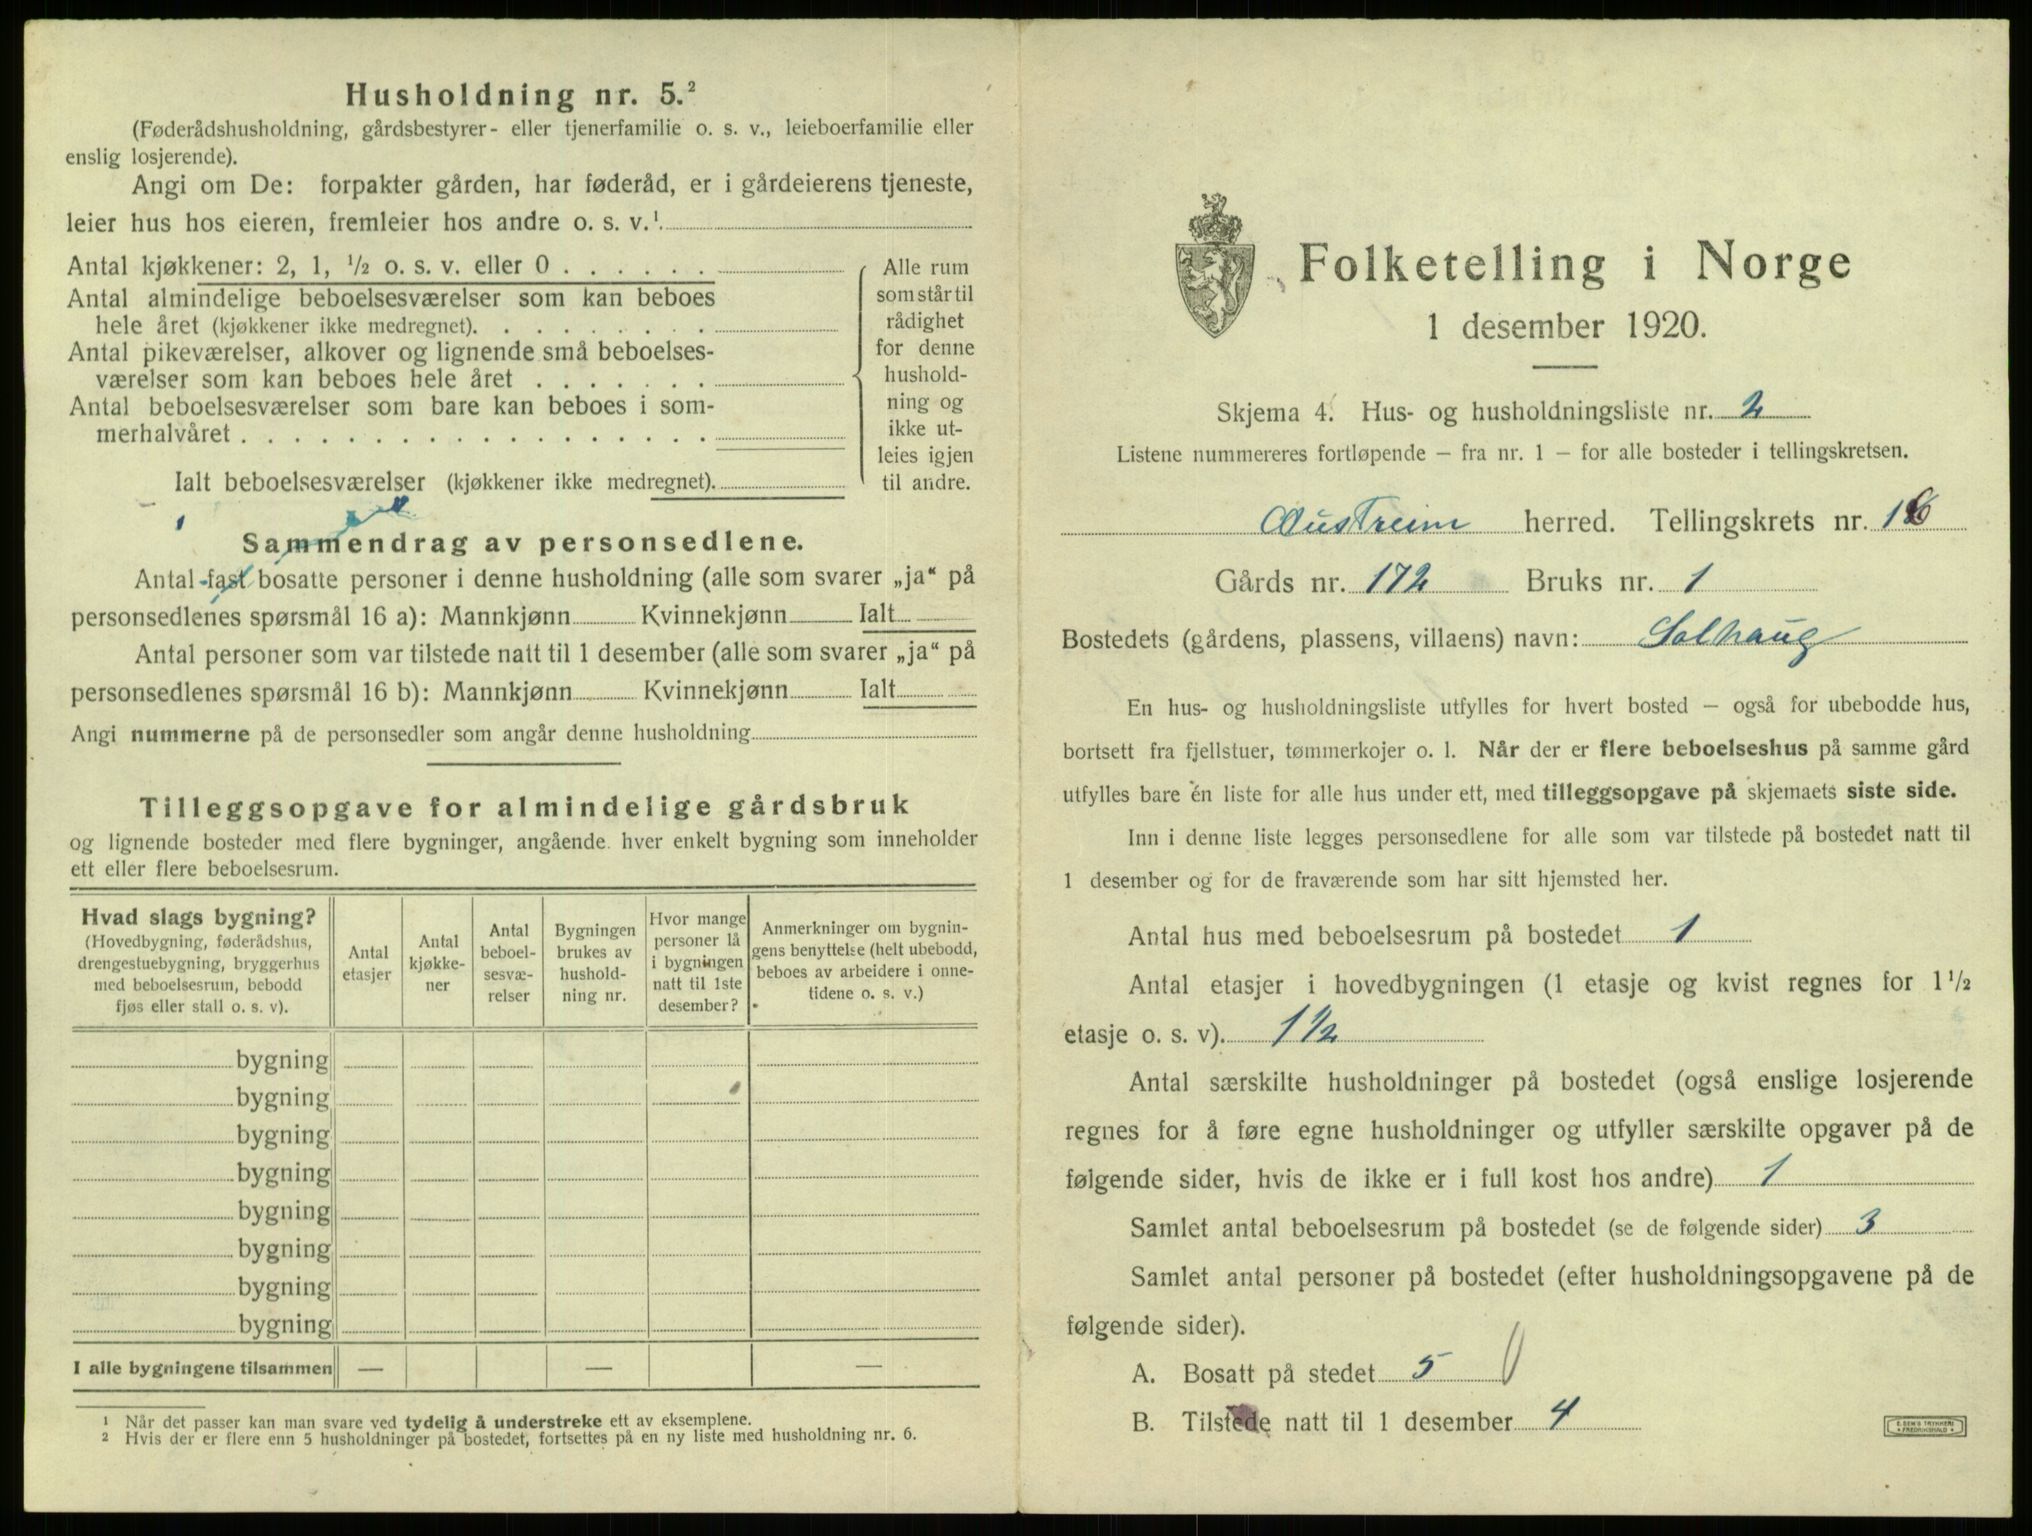 Husholdning nr. 5.²
(Føderådshusholdning, gårdsbestyrer- eller tjenerfamilie o. s. v., leieboerfamilie eller
enslig losjerende).
Angi om De: forpakter gården, har føderåd, er i gårdeierens tjeneste,
leier hus hos eieren, fremleier hos andre o. s. v.¹
Antal kjøkkener: 2, 1, ½ o. s. v. eller 0 . . . . . .
Antal almindelige beboelsesværelser som kan beboes
hele året (kjøkkener ikke medregnet). . . . . . . . .
Antal pikeværelser, alkover og lignende små beboelses-
værelser som kan beboes hele året . . . . . . .
Antal beboelsesværelser som bare kan beboes i som-
merhalvåret . . . . . . . . . . . . . . . . . .
Alle rum
som står til
rådighet
for denne
hushold-
ning og
ikke ut-
leies igjen
til andre.
Ialt beboelsesværelser (kjøkkener ikke medregnet).
Sammendrag av personsedlene.
Antal fast bosatte personer i denne husholdning (alle som svarer „ja“ på
personsedlenes spørsmål 16 a): Mannkjønn Kvinnekjønn Ialt
Antal personer som var tilstede natt til 1 desember (alle som svarer „ja“ på
personsedlenes spørsmål 16 b): Mannkjønn Kvinnekjønn Ialt
Angi nummerne på de personsedler som angår denne husholdning
Tilleggsopgave for almindelige gårdsbruk
og lignende bosteder med flere bygninger, angående hver enkelt bygning som inneholder
ett eller flere beboelsesrum.
Hvad slags bygning?
(Hovedbygning, føderådshus,
drengestuebygning, bryggerhus
med beboelsesrum, bebodd
fjøs eller stall o. s. v).
Antal
etasjer
Antal
kjøkke-
ner
Antal
beboel-
sesvæ-
relser
Bygningen
brukes av
hushold-
ning nr.
Hvor mange
personer lå
i bygningen
natt til 1ste
desember?
Anmerkninger om bygnin-
gens benyttelse (helt ubebodd,
beboes av arbeidere i onne-
tidene o. s. v.)
bygning
bygning
bygning
bygning
bygning
bygning
bygning
bygning
I alle bygningene tilsammen — — —
¹ Når det passer kan man svare ved tydelig å understreke ett av eksemplene.
² Hvis der er flere enn 5 husholdninger på bostedet, fortsettes på en ny liste med husholdning nr. 6.
Folketelling i Norge
1 desember 1920.
Skjema 4. Hus- og husholdningsliste nr. 2
Listene nummereres fortløpende – fra nr. 1 – for alle bosteder i tellingskretsen.
Austreim herred. Tellingskrets nr. 16
Gårds nr. 172 Bruks nr. 1
Bostedets (gårdens, plassens, villaens) navn: Solhaug
En hus- og husholdningsliste utfylles for hvert bosted – også for ubebodde hus,
bortsett fra fjellstuer, tømmerkojer o. l. Når der er flere beboelseshus på samme gård
utfylles bare én liste for alle hus under ett, med tilleggsopgave på skjemaets siste side.
Inn i denne liste legges personsedlene for alle som var tilstede på bostedet natt til
1 desember og for de fraværende som har sitt hjemsted her.
Antal hus med beboelsesrum på bostedet 1
Antal etasjer i hovedbygningen (1 etasje og kvist regnes for 1½
etasje o. s. v). 1½
Antal særskilte husholdninger på bostedet (også enslige losjerende
regnes for å føre egne husholdninger og utfyller særskilte opgaver på de
følgende sider, hvis de ikke er i full kost hos andre) 1
Samlet antal beboelsesrum på bostedet (se de følgende sider) 3
Samlet antal personer på bostedet (efter husholdningsopgavene på de
følgende sider).
A. Bosatt på stedet 5
B. Tilstede natt til 1 desember 4
E. SEM'S TRYKKERI
FREDRIKSHALD